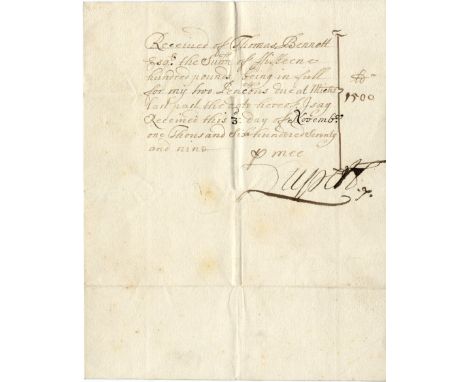 Received of Thomas Bennett
Esqr. the Sum of fifteene
hundred pounds, being in full
for my two Pencons due at Micħs
last past the date hereof I say
Received this 3 day of Novembr
one Thousand Six hundred Seventy
and nine
1500
mee
Rupert